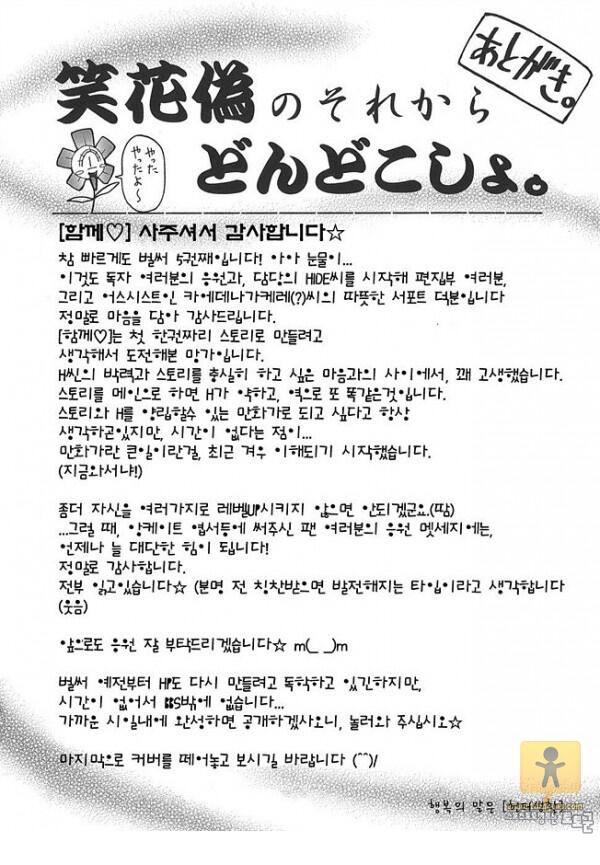 あとがき。
笑花偽のそれから
どんどこしょ。
やった
やったよ〜
[함께♡] 사주셔서 감사합니다☆
참 빠르게도 벌써 5권째입니다! 아아 눈물이...
이것도 독자 여러분의 응원과, 담당의 HIDE씨를 시작해 편집부 여러분,
그리고 어스시스트인 카에데나가케레(?)씨의 따뜻한 서포트 덕분입니다
정말로 마음을 담아 감사드립니다.
[함께♡]는 첫 한권짜리 스토리로 만들려고
생각해서 도전해본 망가입니다.
H씬의 박력과 스토리를 충실히 하고 싶은 마음과의 사이에서, 꽤 고생했습니다.
스토리를 메인으로 하면 H가 약하고, 역으로 또 똑같은것입니다.
스토리와 H를 양립할수 있는 만화가로 되고 싶다고 항상
생각하곤있지만, 시간이 없다는 점이...
만화가란 큰일이란걸, 최근 겨우 이해되기 시작했습니다.
(지금와서냐!)
좀더 자신을 여러가지로 레벨UP시키지 않으면 안되겠군요..(땀)
...그럴 때, 앙케이트 엽서등에 써주신 팬 여러분의 응원 멧세지에는,
언제나 늘 대단한 힘이 됩니다!
정말로 감사합니다.
전부 읽고있습니다☆ (분명 전 칭찬받으면 발전해지는 타입이라고 생각합니다
(웃음)
앞으로도 응원 잘 부탁드리겠습니다☆ m(_ _)m
벌써 예전부터 HP도 다시 만들려고 독학하고 있긴하지만,
시간이 없어서 BBS밖에 없습니다...
가까운 시일내에 완성하면 공개하겠사오니, 놀러와 주십시오☆
마지막으로 커버를 떼어놓고 보시길 바랍니다 (^^)/
행복의 말뚝